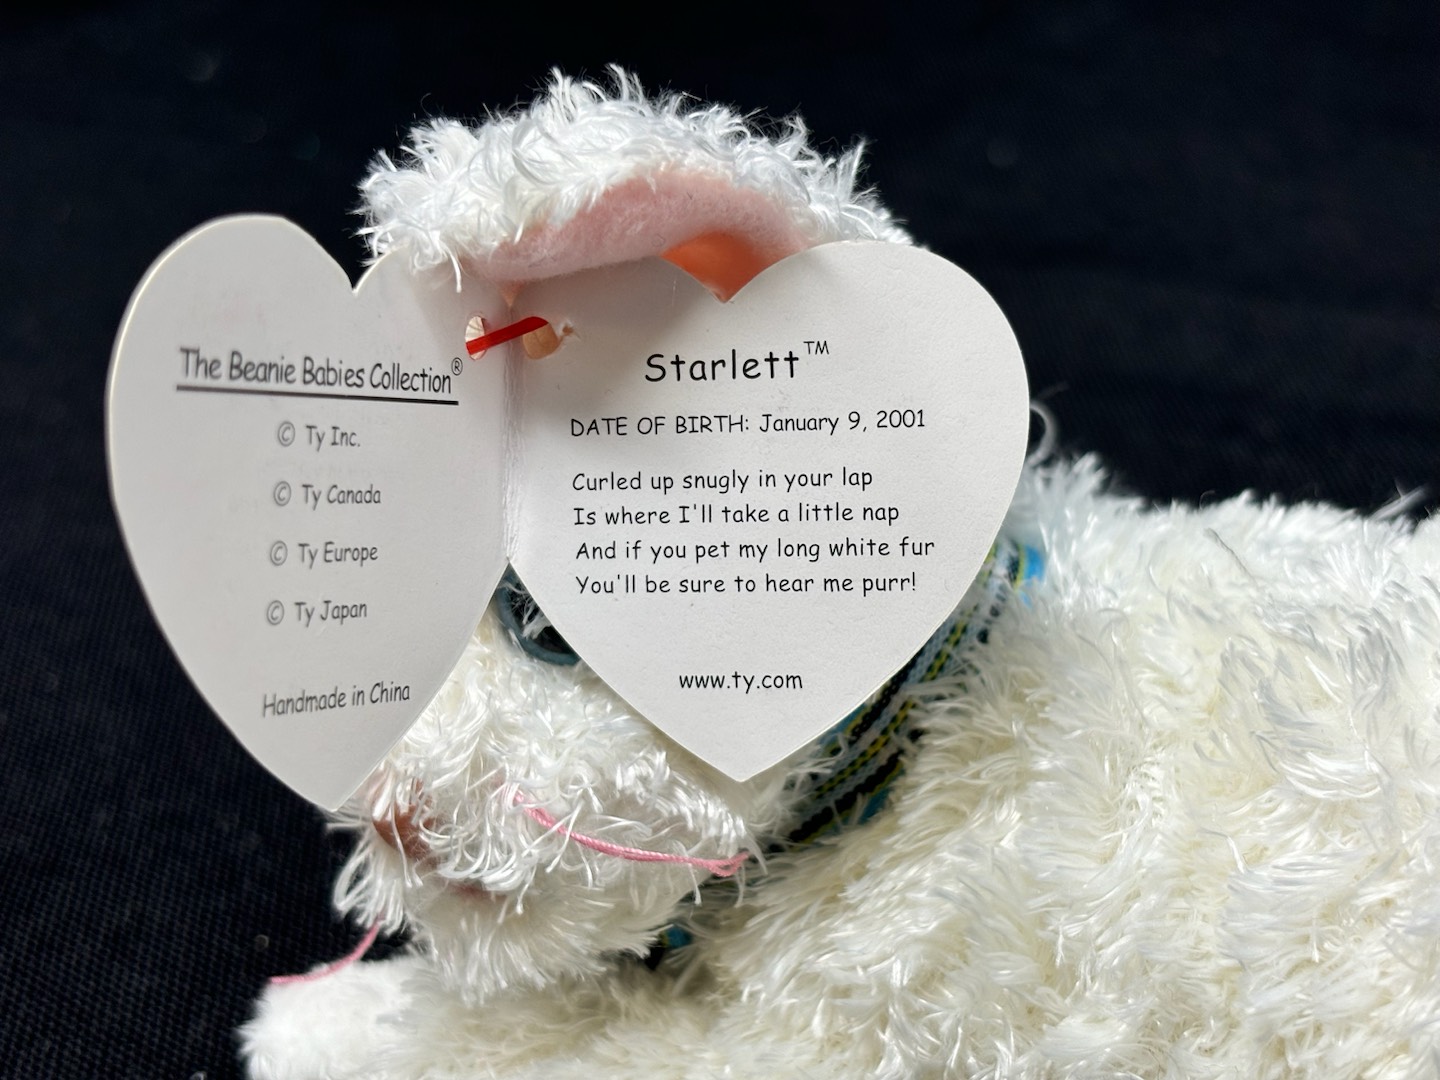 The Beanie Babies Collection®
© Ty Inc.
© Ty Canada
© Ty Europe
© Ty Japan
Handmade in China
Starlett™
DATE OF BIRTH: January 9, 2001
Curled up snugly in your lap
Is where I'll take a little nap
And if you pet my long white fur
You'll be sure to hear me purr!
www.ty.com